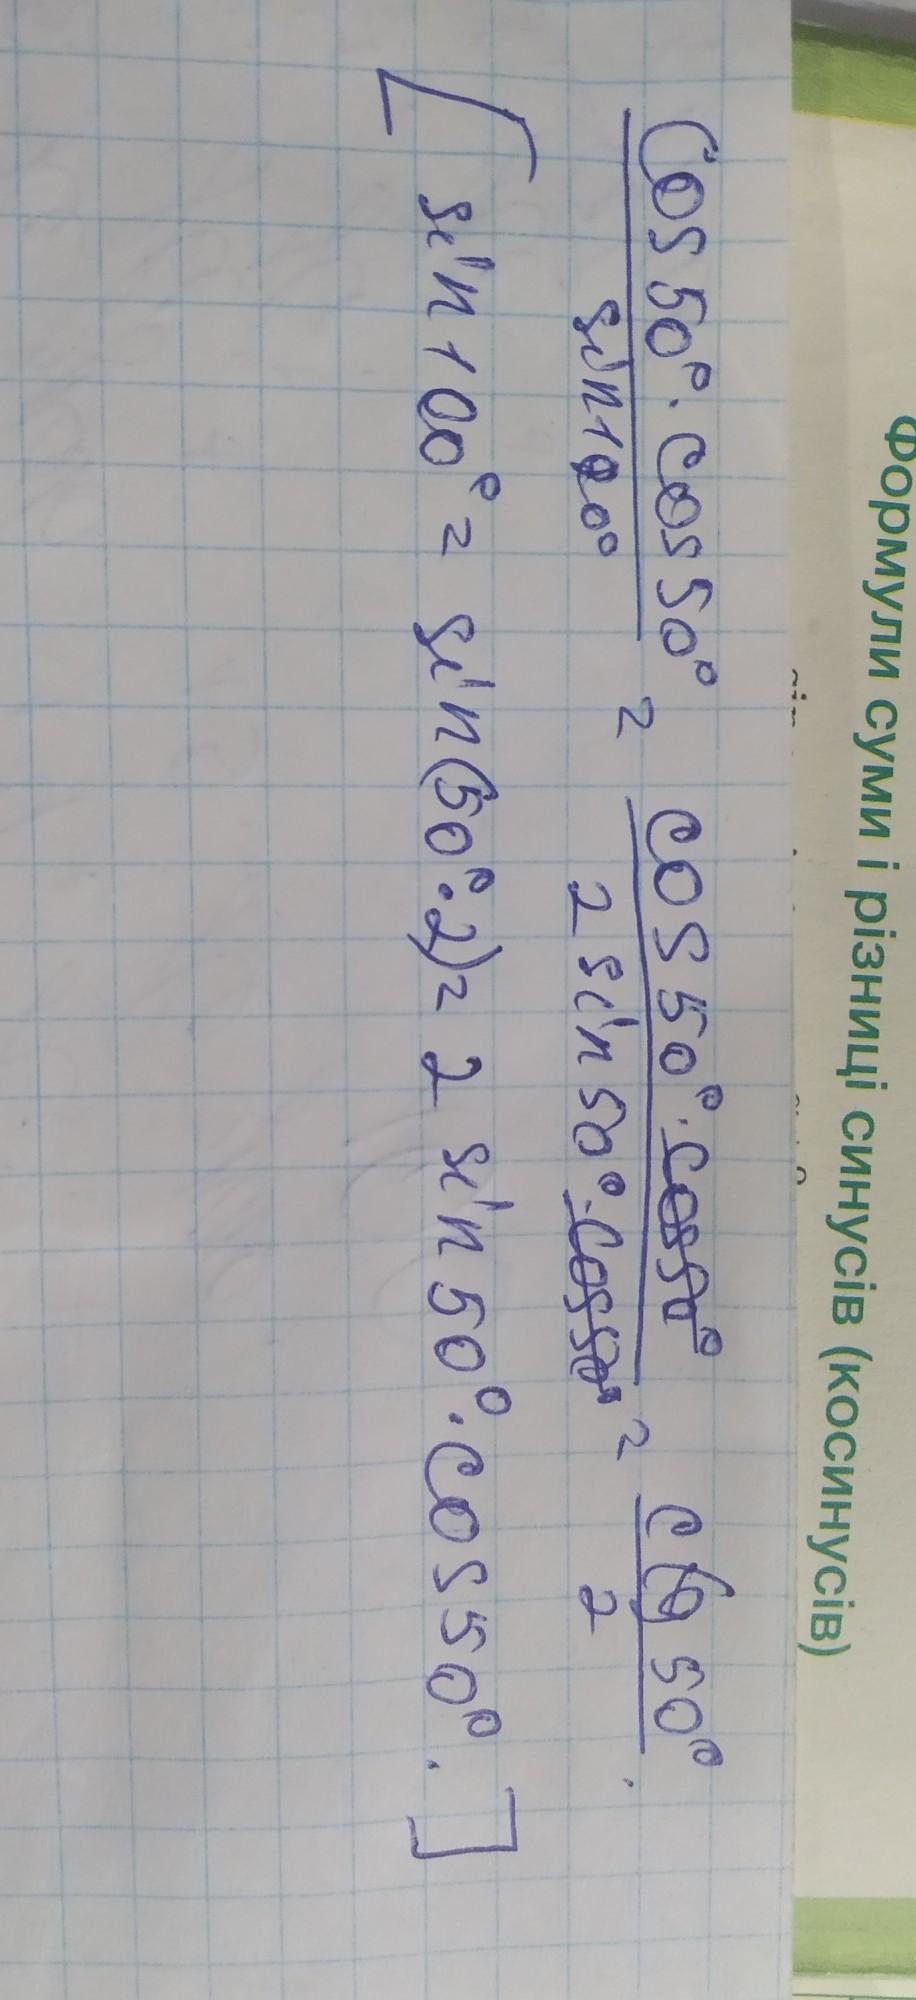 Формули суми і різниці синусів (косинусів)
cos 50° · cos 50° / sin 100° = cos 50° · cos 50° / 2 sin 50° · cos 50° = ctg 50° / 2 .
[ sin 100° = sin(50° · 2) = 2 sin 50° · cos 50° . ]